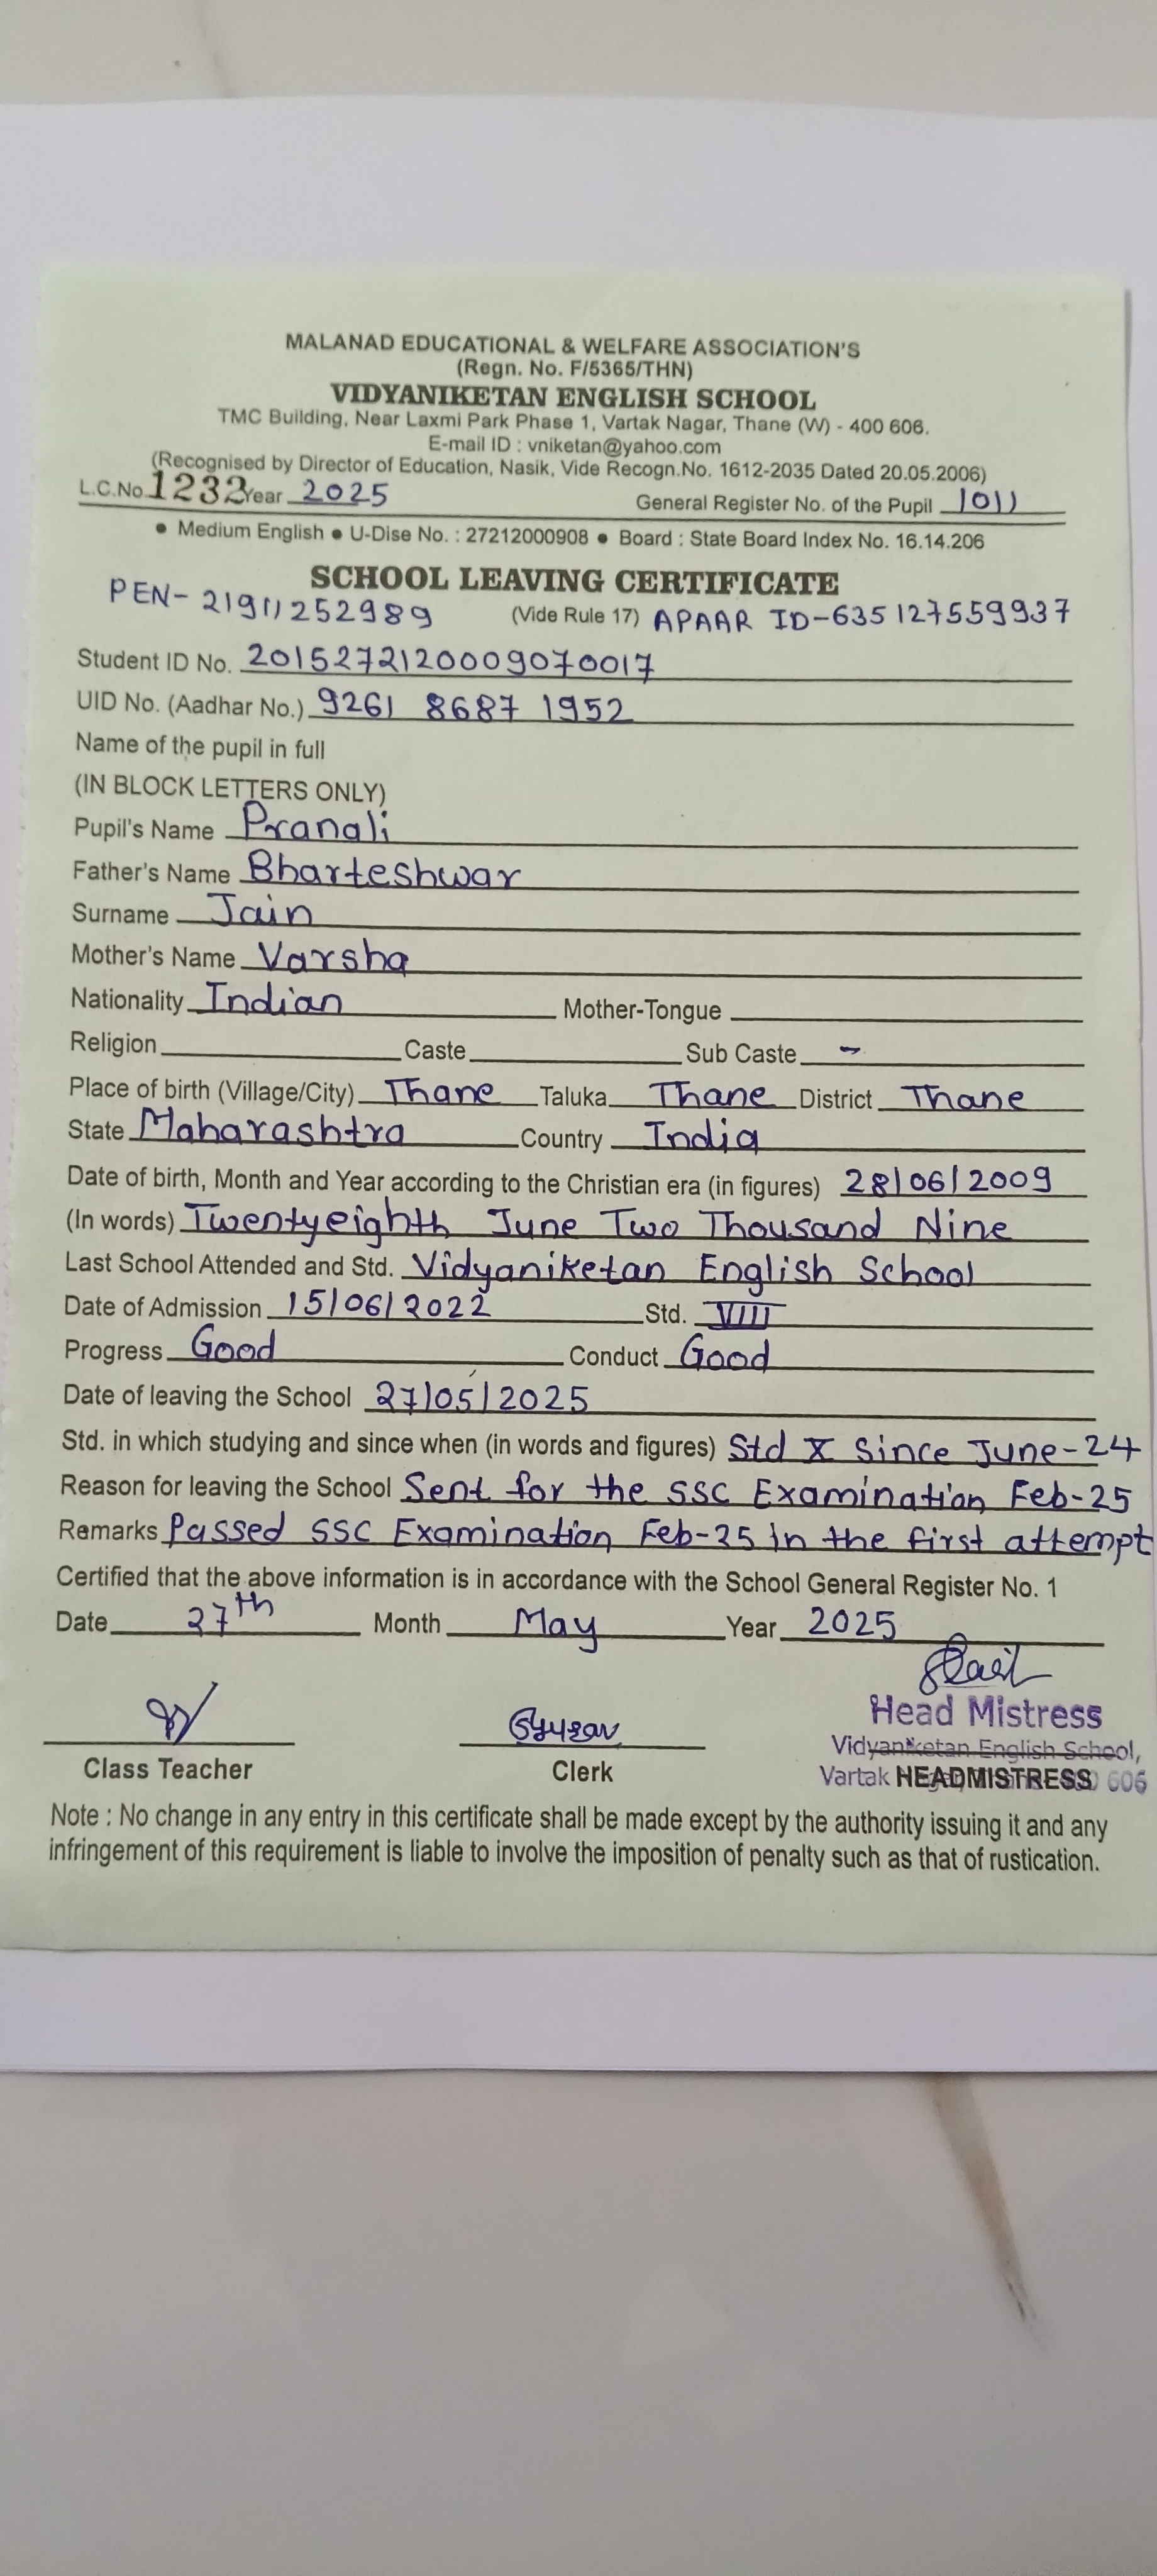 MALANAD EDUCATIONAL & WELFARE ASSOCIATION'S
(Regn. No. F/5365/THN)
VIDYANIKETAN ENGLISH SCHOOL
TMC Building, Near Laxmi Park Phase 1, Vartak Nagar, Thane (W) - 400 606.
E-mail ID : vniketan@yahoo.com
(Recognised by Director of Education, Nasik, Vide Recogn.No. 1612-2035 Dated 20.05.2006)
L.C.No. 1232 Year 2025 General Register No. of the Pupil 1011
• Medium English • U-Dise No. : 27212000908 • Board : State Board Index No. 16.14.206
SCHOOL LEAVING CERTIFICATE
PEN- 21911252989 (Vide Rule 17) APAAR ID-635127559937
Student ID No. 2015272120009070017
UID No. (Aadhar No.) 9261 8687 1952
Name of the pupil in full
(IN BLOCK LETTERS ONLY)
Pupil's Name Pranali
Father's Name Bharteshwar
Surname Jain
Mother's Name Varsha
Nationality Indian Mother-Tongue
Religion Caste Sub Caste -
Place of birth (Village/City) Thane Taluka Thane District Thane
State Maharashtra Country India
Date of birth, Month and Year according to the Christian era (in figures) 28/06/2009
(In words) Twentyeighth June Two Thousand Nine
Last School Attended and Std. Vidyaniketan English School
Date of Admission 15/06/2022 Std. VIII
Progress Good Conduct Good
Date of leaving the School 27/05/2025
Std. in which studying and since when (in words and figures) Std X Since June-24
Reason for leaving the School Sent for the SSC Examination Feb-25
Remarks Passed SSC Examination Feb-25 in the first attempt
Certified that the above information is in accordance with the School General Register No. 1
Date 27th Month May Year 2025
Head Mistress
Vidyaniketan English School,
Vartak HEADMISTRESS 606
Class Teacher Clerk
Note : No change in any entry in this certificate shall be made except by the authority issuing it and any
infringement of this requirement is liable to involve the imposition of penalty such as that of rustication.